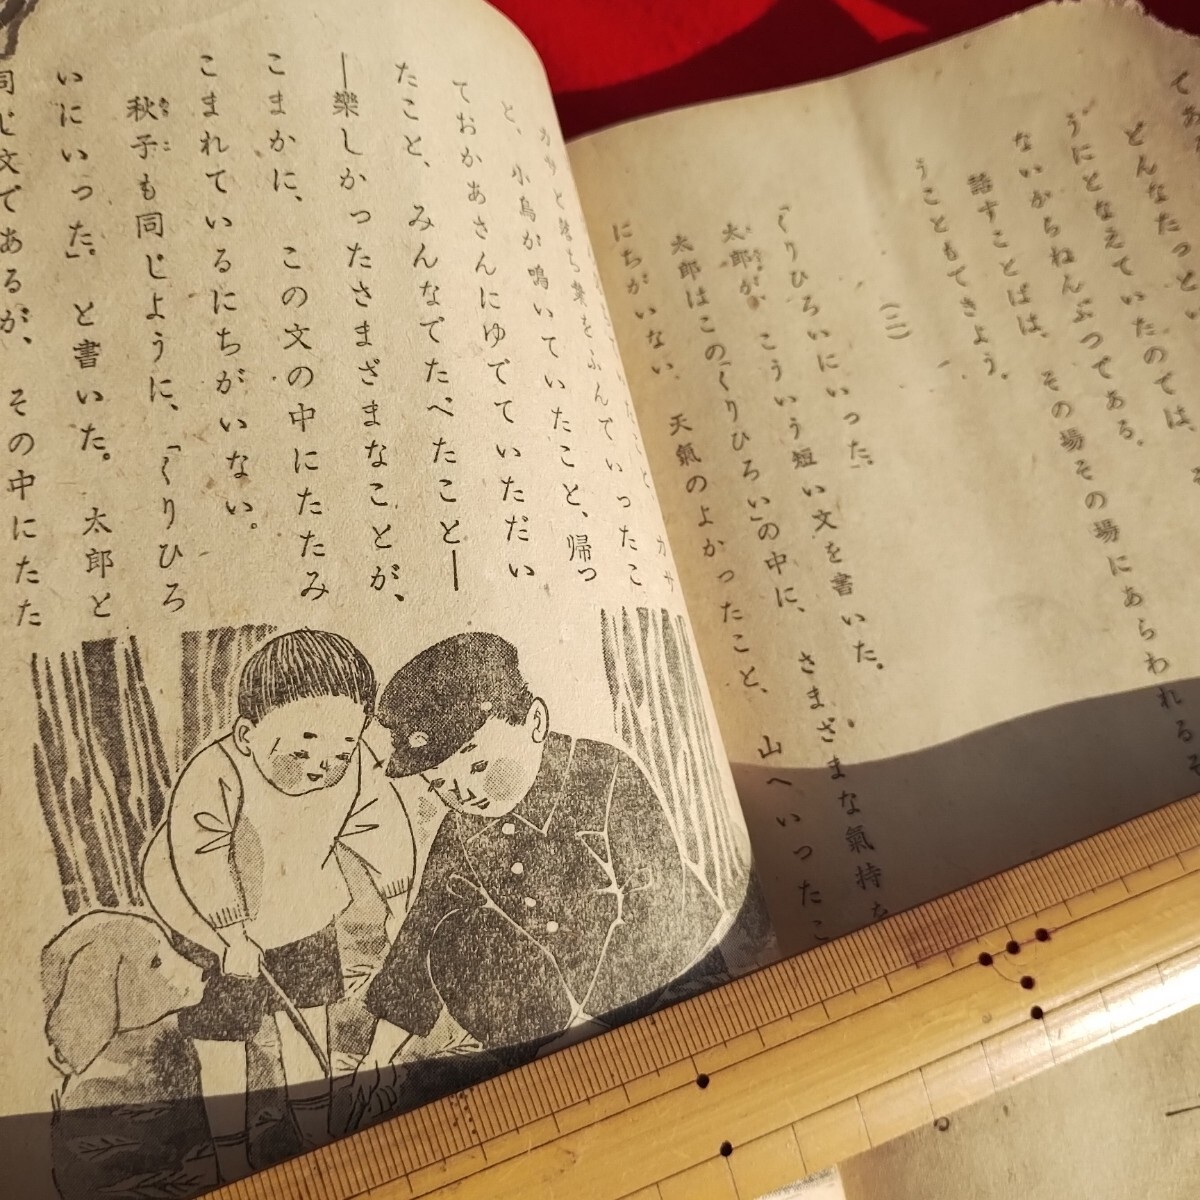 どんなたっとい
うにとなえていたのでは、
ないからねんぶつである。
話すことばは、その場その場にあらわれる
うこともできよう。
(二)
「くりひろいにいった。」
太郎が、こういう短い文を書いた。
太郎はこの「くりひろい」の中に、さまざまな氣持
にちがいない。天氣のよかったこと、山へいったこ
をふんでいったこ
と、小鳥が鳴いていたこと、帰っ
ておかあさんにゆでていただい
たこと、みんなでたべたこと—
—樂しかったさまざまなことが、
こまかに、この文の中にたたみ
こまれているにちがいない。
秋子も同じように、「くりひろ
いにいった。」と書いた。太郎と
同じ文であるが、その中にたた